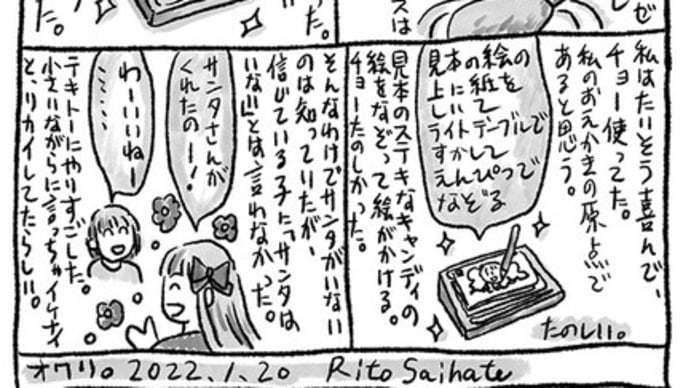 ゼ
スは
た。
私はたいそう喜んで、
チョー使ってた。
私のおえかきの原点で
あると思う。
見本のステキなキャンディの
絵をなぞって絵がかける。
チョーたのしかった。
たのしい。
そんなわけでサンタがいない
のは知っていたが、
信じている子に「サンタは
いない」とは言わなかった。
サンタさんが
くれたのー！
わーいいねー
……
テキトーにやりすごした。
小さいながらに言っちゃイケナイ
と、リカイしてたらしい。
オワリ。2022.1.20 Rito Saihate